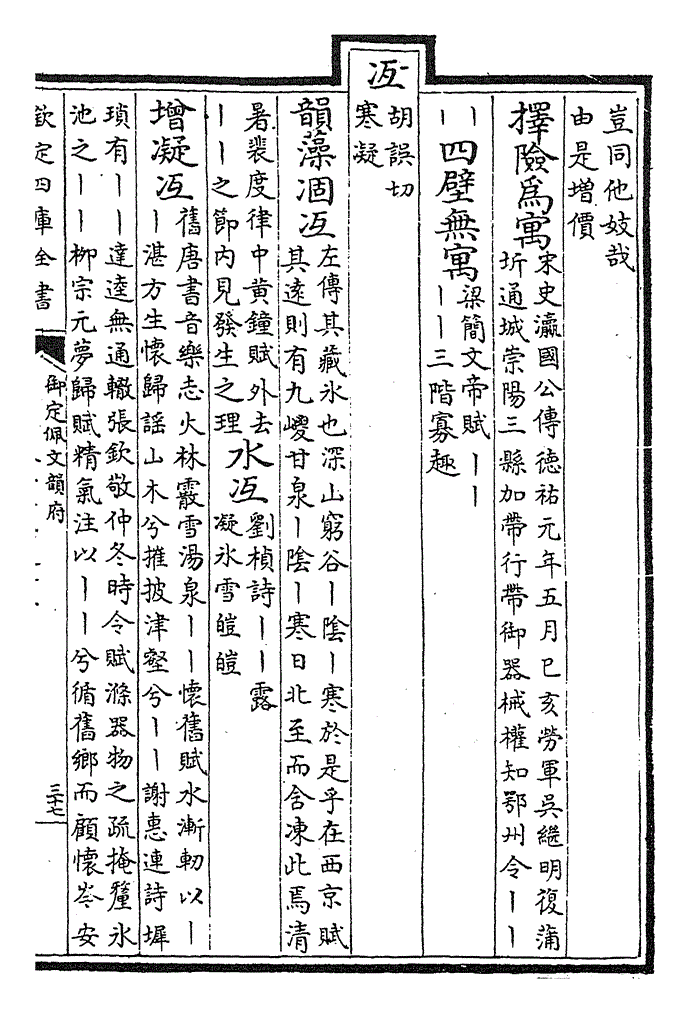 豈同他妓哉
由是增價
擇險爲寓宋史瀛國公傳德祐元年五月己亥勞軍吳繼明復蒲
圻通城崇陽三縣加帶行帶御器械權知鄂州令丨丨
丨
丨四壁無寓梁簡文帝賦丨丨
丨丨三階寡趣
冱
胡誤切
寒凝
韻藻涸冱左傳其藏氷也深山窮谷丨陰丨寒於是乎在西京賦
其遠則有九嵕甘泉丨陰丨寒日北至而含凍此焉清
暑裴度律中黄鐘賦外去
丨丨之節内見發生之理水冱劉楨詩丨丨露
凝氷雪皚皚
增凝冱舊唐書音樂志火林霰雪湯泉丨丨懷舊賦水漸軔以丨
丨湛方生懷歸謡山木兮摧披津壑兮丨丨謝惠連詩墀
瑣有丨丨達逵無通轍張欽敬仲冬時令賦滌器物之疏掩釐氷
池之丨丨柳宗元夢歸賦精氣注以丨丨兮循舊鄉而顧懷岑安
欽定四庫全書
御定佩文韻府
三十七